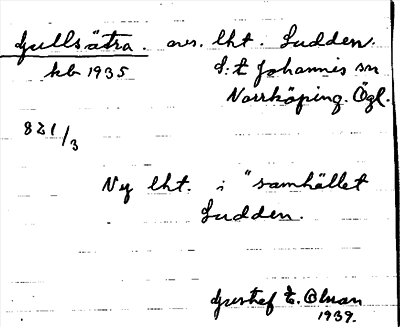 Gullsätra. avs. lht. Ludden.
kb 1935 S:t Johannis sn
Norrköping. Ögl.
821/3
Ny lht. i "samhället
Ludden.
Gustaf E. Olman
1939.